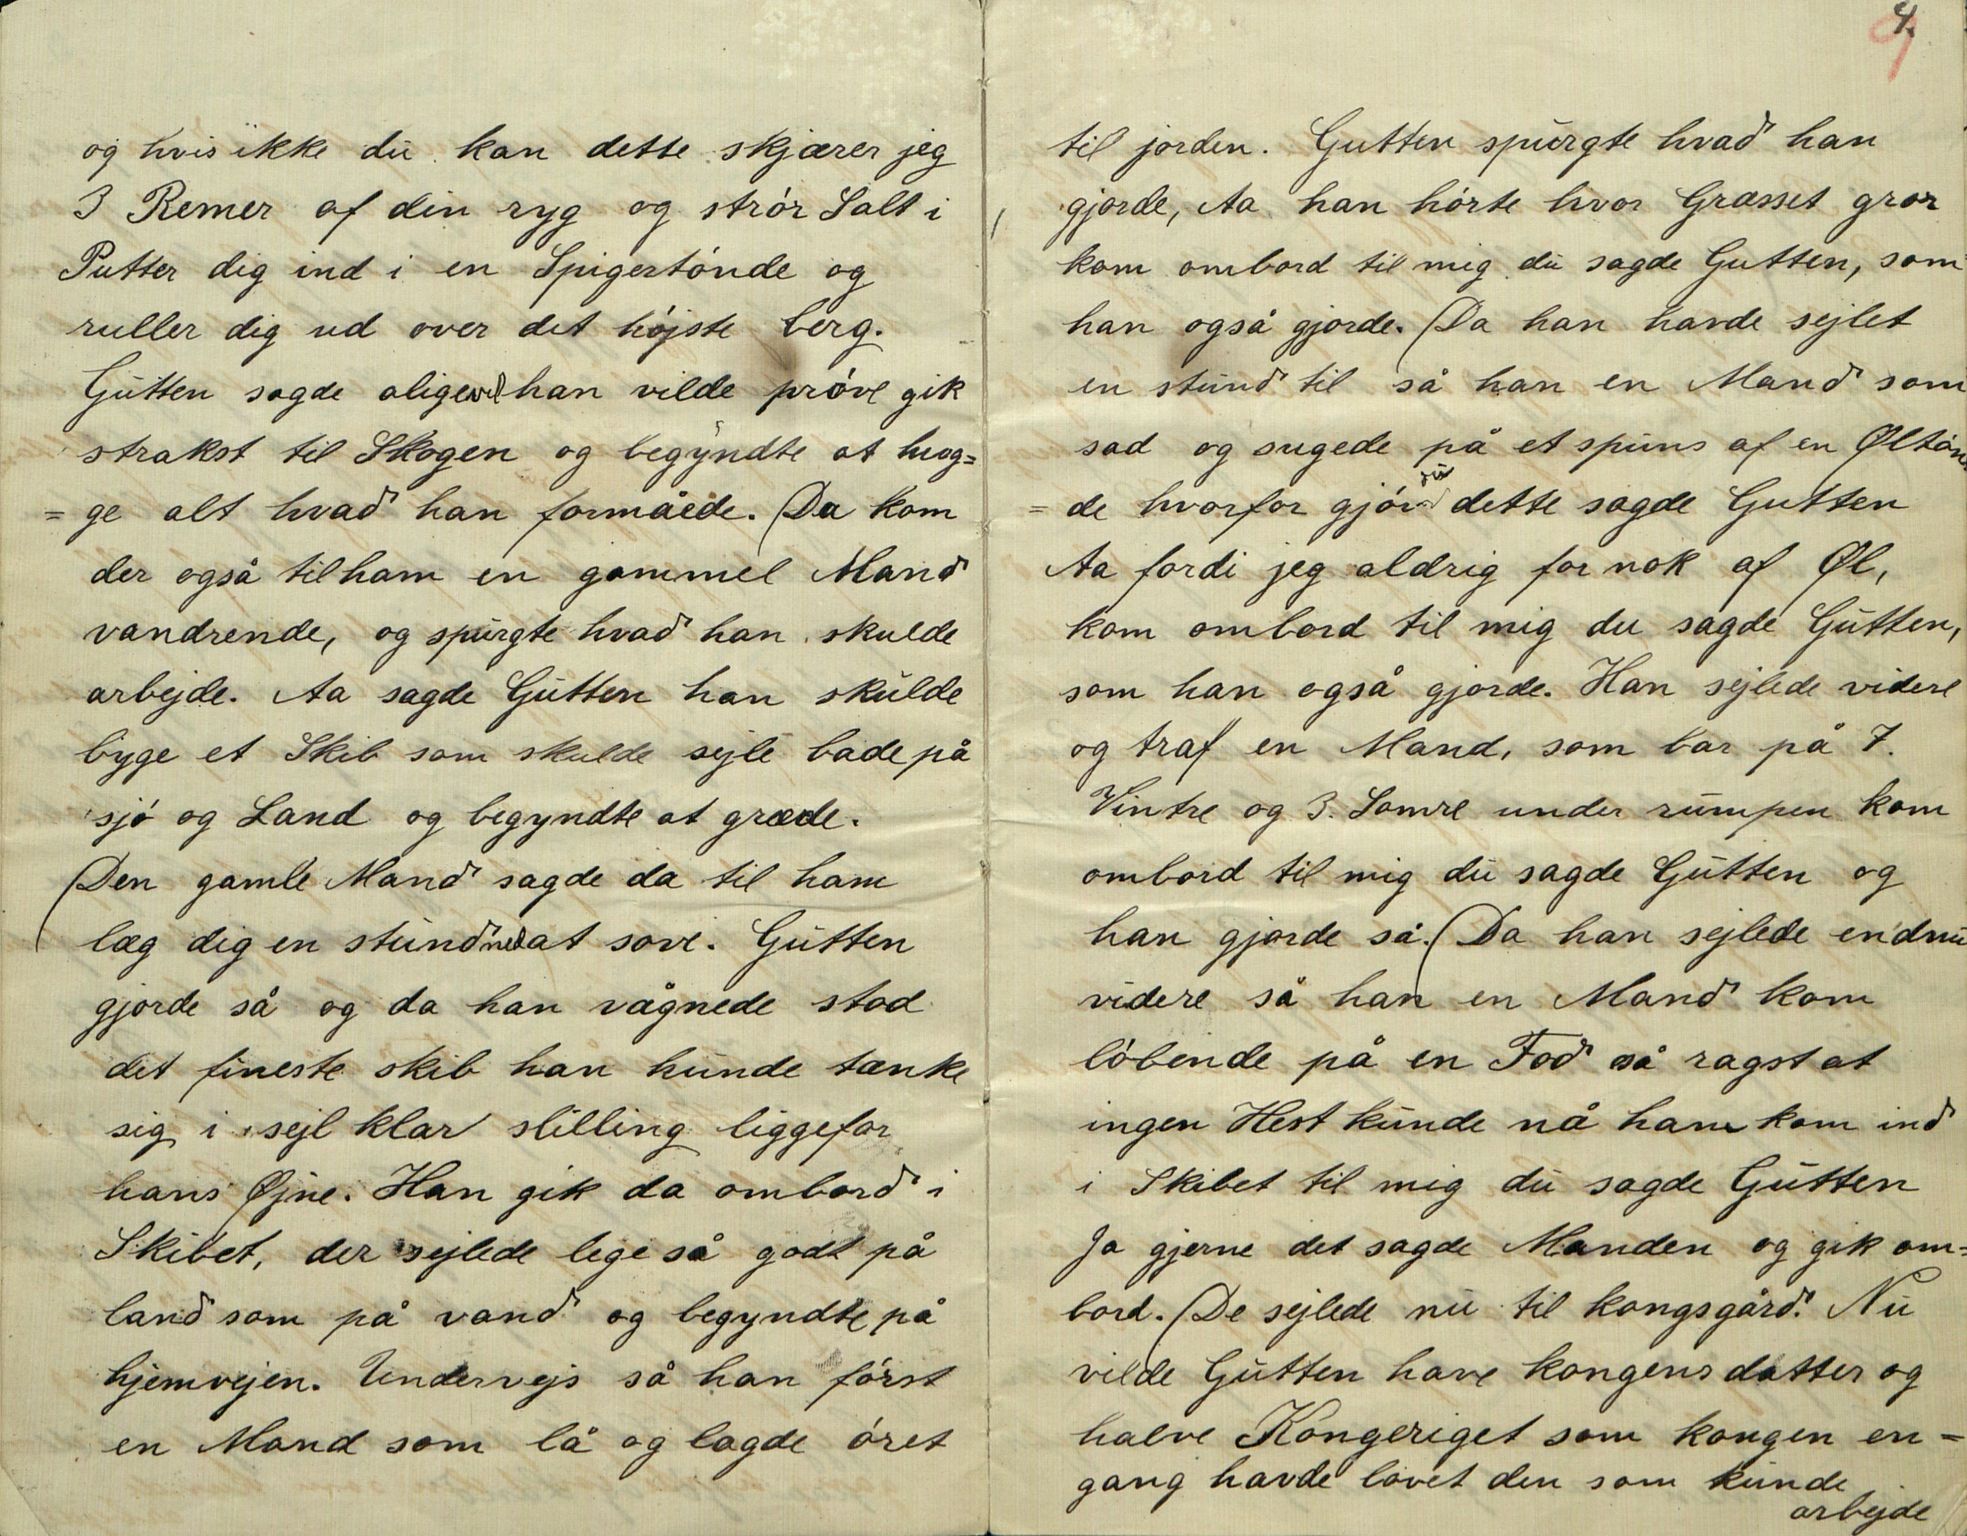 og hvis ikke du kan dette skjærer jeg
3 Remer af din ryg og strór Salt i
Putter dig ind i en Spigertónde og
ruller dig ud over det hójste berg.
Gutten sagde aligevel han vilde próve gik
strakst til Skogen og begyndte at hug=
= ge alt hvad han formåede. Da kom
der også til ham en gammel Mand
vandrende, og spurgte hvad han skulde
arbejde. Aa sagde Gutten han skulde
byge et Skib som skulde sejle både på
sjó og Land og begyndte at græde.
Den gamle Mand sagde da til ham
læg dig en stund ned at sove. Gutten
gjorde så og da han vågnede stod
det fineste skib han kunde tænke
sig i sejl klar stilling ligge for
hans Øjne. Han gik da ombord i
Skibet, der sejlede lege så godt på
land som på vand og begyndte på
hjemvejen. Undervejs så han fórst
en Mand som lå og lagde óret
4.
9
til jorden. Gutten spurgte hvad han
gjorde, Aa han hórte hvor Græsset gror
kom ombord til mig du sagde Gutten, som
han også gjorde. Da han havde sejlet
en stund til så han en Mand som
sad og sugede på et spuns af en Øltón
= de hvorfor gjór du dette sagde Gutten
Aa fordi jeg aldrig for nok af Øl,
kom ombord til mig du sagde Gutten,
som han også gjorde. Han sejlede videre
og traf en Mand, som bar på 7.
Vintre og 3. Somre under rumpen kom
ombord til mig du sagde Gutten og
han gjorde så. Da han sejlede endnu
videre så han en Mand kom
lóbende på en Fod så ragst at
ingen Hest kunde nå ham kom ind
i Skibet til mig du sagde Gutten
Ja gjerne det sagde Manden og gik om=
bord. De sejlede nu til kongsgård. Nu
vilde Gutten have kongens datter og
halve Kongeriget som kongen en =
gang havde lovet den som kunde
arbejde